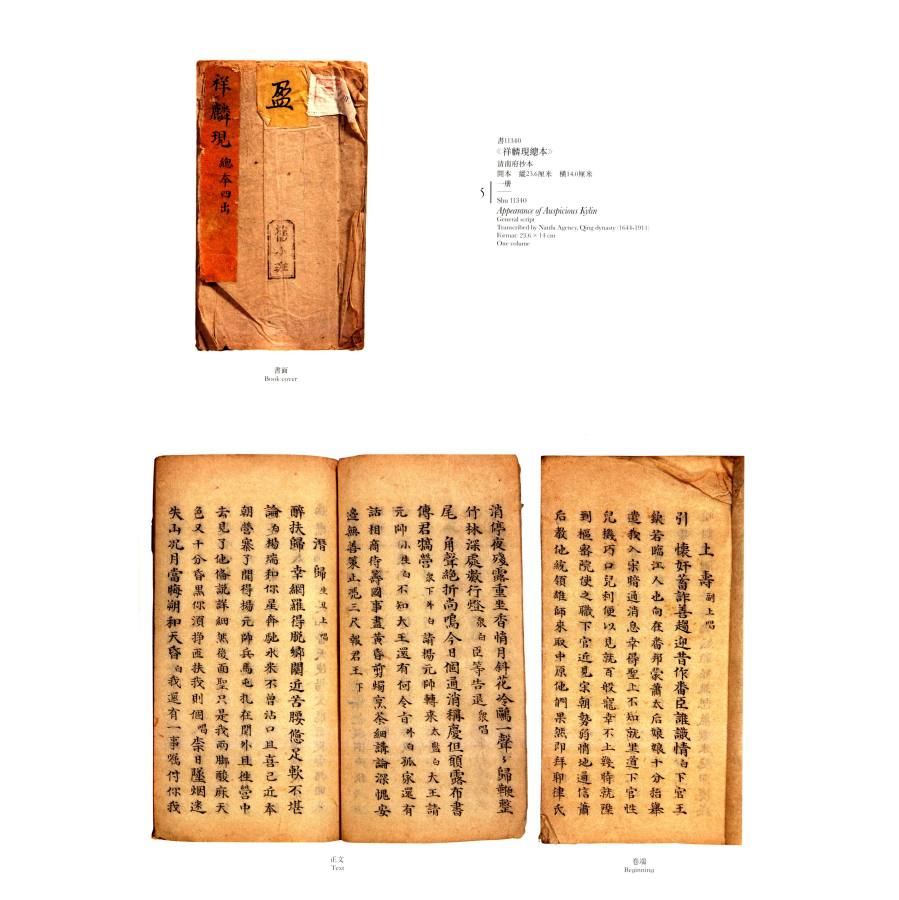 祥麟現
總本四出
盈
書面
Book cover
5
書11340
《祥麟現總本》
清南府抄本
開本　縱23.6厘米　橫14.0厘米
一冊
Shu 11340
Appearance of Auspicious Kylin
General script
Transcribed by Nanfu Agency, Qing dynasty (1644-1911)
Format: 23.6 × 14 cm
One volume
上壽 副上唱
引 懷奸蓄詐善趨迎昔作番臣誰識情 白 下官王
欽若臨江人也向在番邦蒙蕭太后娘娘十分抬舉
遣我入宋暗通消息幸得聖上不知就里道下官性
兒機巧口兒利便以見就百般寵幸不上幾時就陞
到樞密院使之職下官近見宋朝勢弱悄地通信蕭
后教他統領雄師來取中原他們果然即拜耶律氏
卷端
Beginning
消停夜殘露重坐杳情月斜花冷鷗一聲聲歸鞭整
竹林深處數行燈 眾白 臣等告退 眾唱
尾 角聲絕折高鳴今日個通消稱慶但願露布書
傳君犒營 眾下外白 請楊元帥轉來 太監白 大王請
元帥 小生白 不知大王還有何令旨 外白 孤家還有
話相商待籌國事盡黃昏剪燭烹茶細講論深愧安
邊無善策止凴三尺報君王 下
潛歸 生丑上唱
醉扶歸 幸網羅得脫螄闌近苦腰憊足軟不堪
論 為楊瑞和你星奔馳永來不曾沾口且喜已近本
朝營寨了聞得楊元帥兵馬屯扎在關外且性營
去見了他備說詳細無後面聖只是我兩脚酸麻天
色又十分昏黑你須挣匝扶我則個 唱 崇日墜烟迷
失山況月當晦朔和天昏 白 我還有一事囑付你我
正文
Text